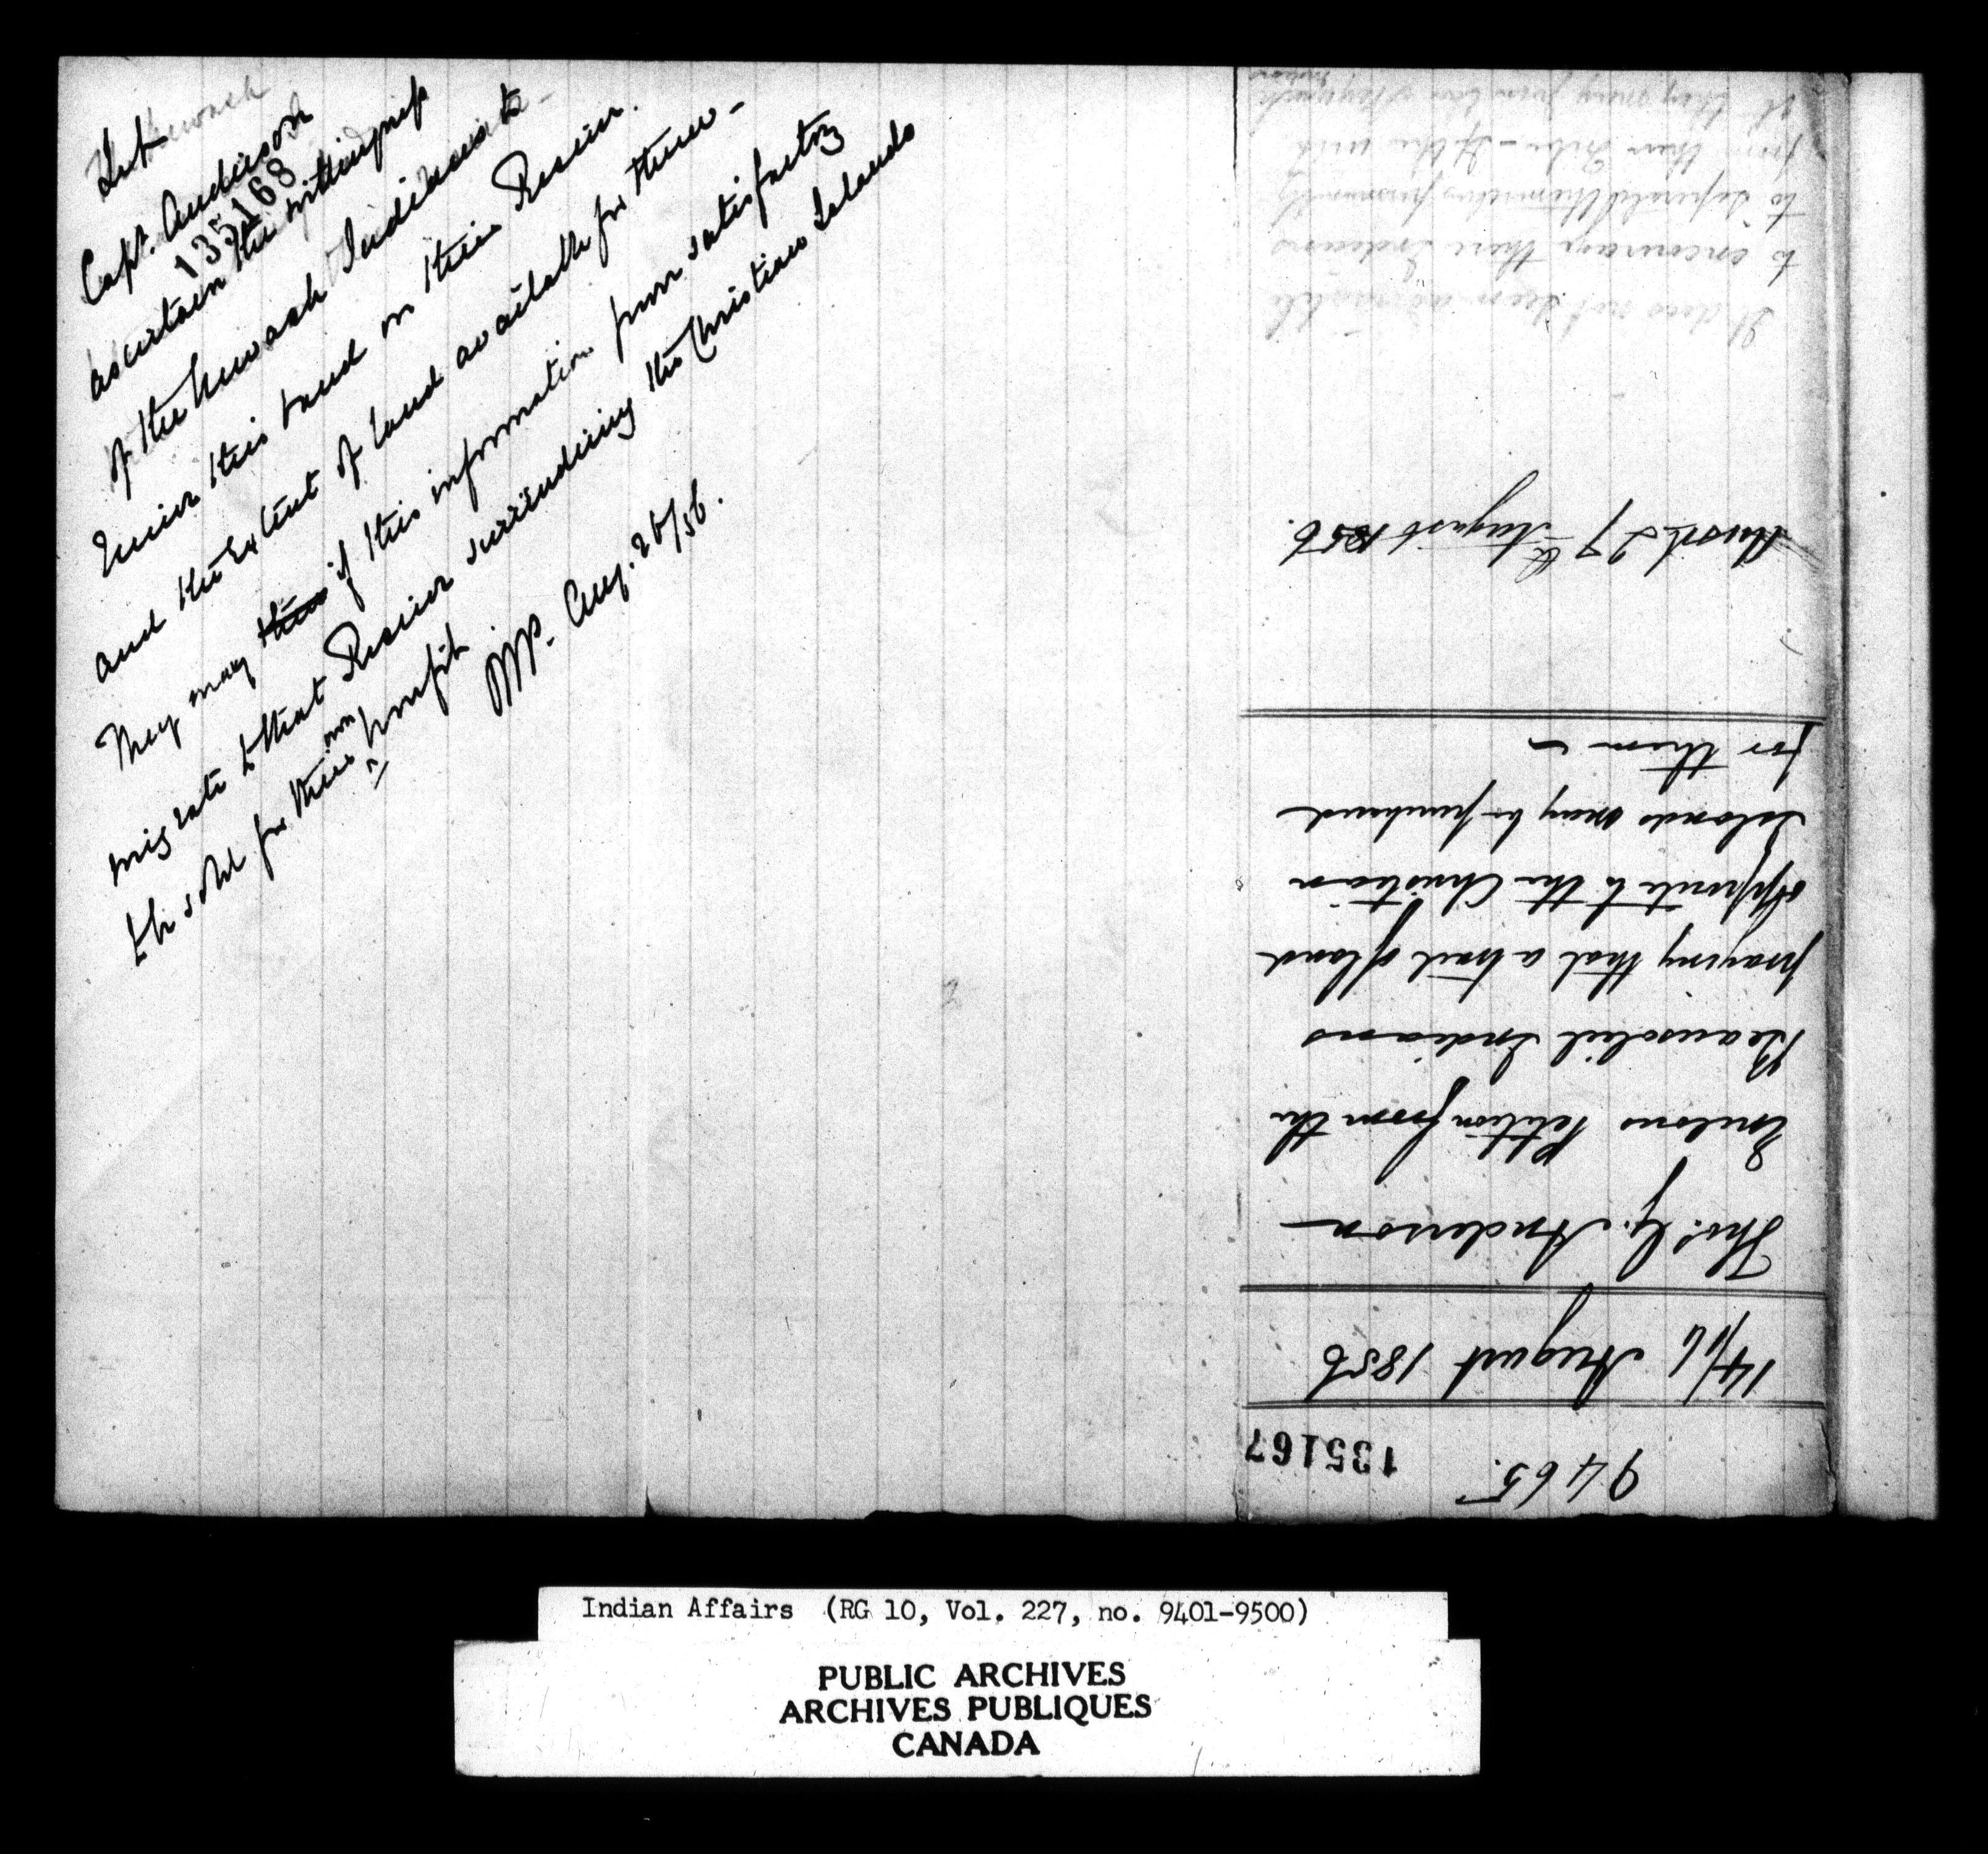 Let
Capt. Anderson
135168
ascertain the willingness
of the Newash Indians to
receive this band on their Reserve.
and the Extent of land available for them -
They may if this information prove satisfactory
migrate to that Reserve surrendering the Christian Islands
to be sold for their own profit.
Aug. 26/56.
9465.
135167
14/16 August 1856
Thos. G. Anderson
Encloses Petition from the
Beausoliel Indians
praying that a tract of land
opposite to the Christian
Islands may be purchased
for them
27th August 1856.
It does not seem advisable
to encourage these Indians
to separate themselves permanently
from their Tribe - If the
they may
Indian Affairs (RG 10, Vol. 227, no. 9401-9500)
PUBLIC ARCHIVES
ARCHIVES PUBLIQUES
CANADA